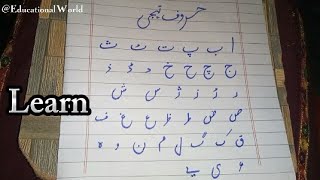 @EducationalWorld
حروف تہجی
ا ب پ ت ٹ ث
ج چ ح خ د ڈ ذ
ر ڑ ز ژ س ش
Learn
ص ض ط ظ ع غ ف
ق ک گ ل م ن و ہ
ء ی ے